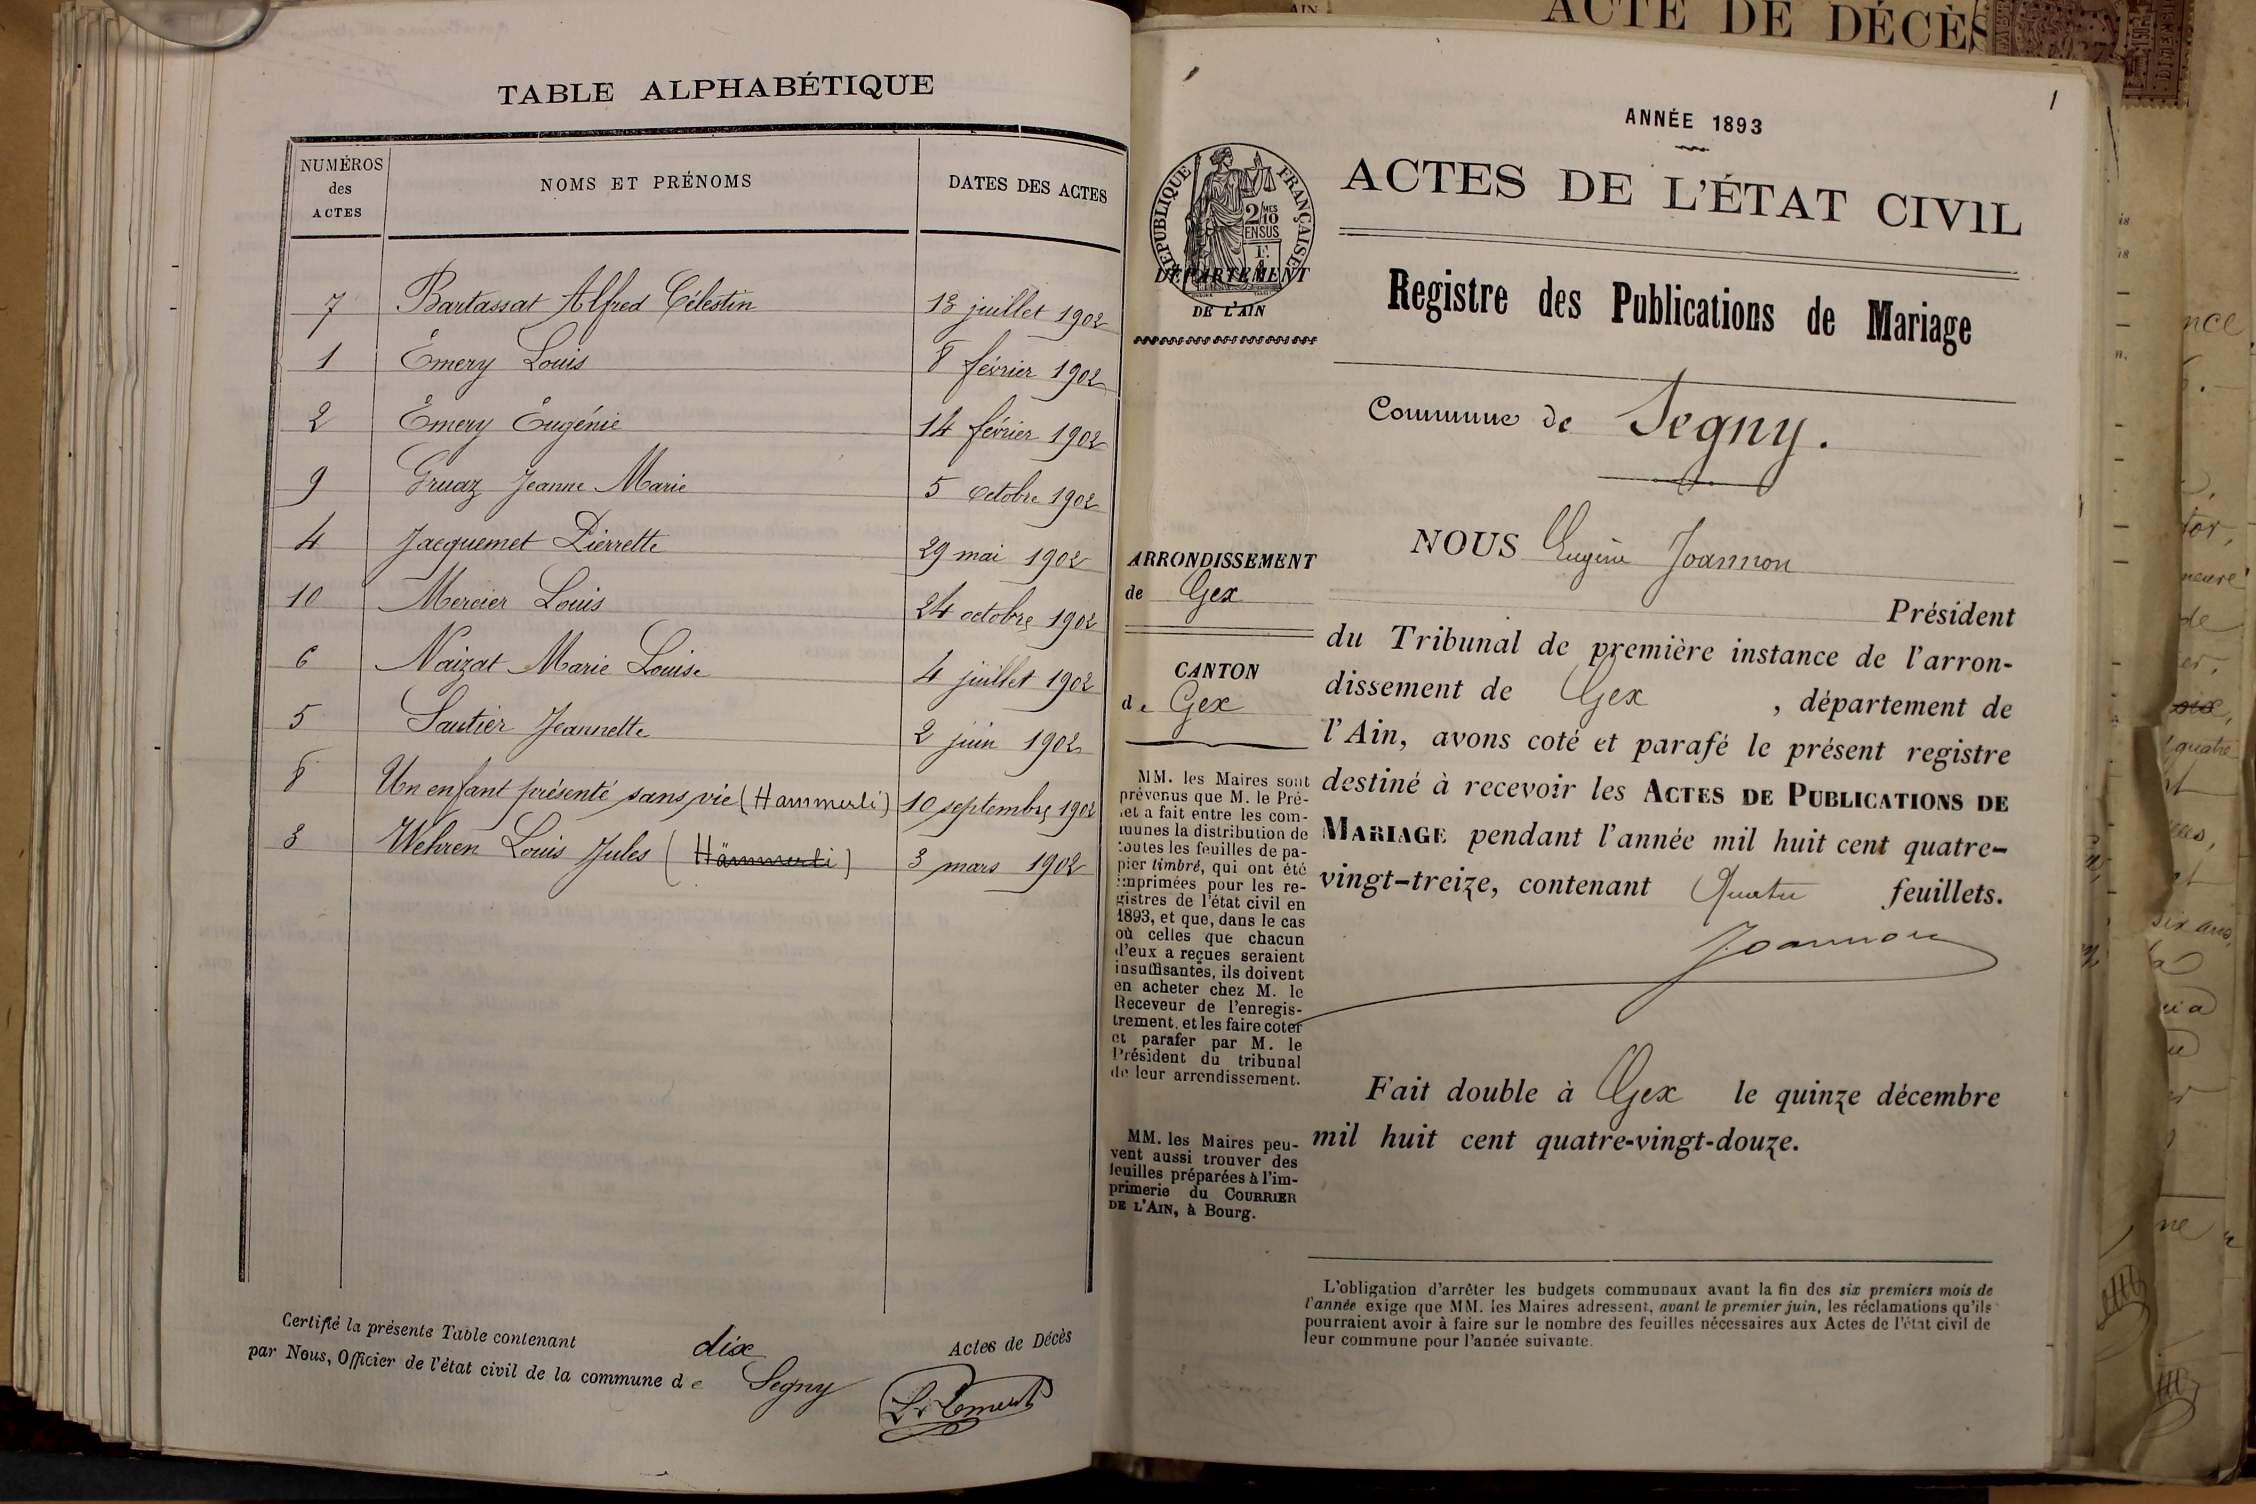 TABLE ALPHABÉTIQUE
NUMÉROS des ACTES NOMS ET PRÉNOMS DATES DES ACTES
7 Bartassat Alfred Célestin 13 juillet 1902
1 Émery Louis 8 février 1902
2 Émery Eugénie 14 février 1902
9 Gruaz Jeanne Marie 5 octobre 1902
4 Jacquemet Pierrette 29 mai 1902
10 Mercier Louis 24 octobre 1902
6 Naizat Marie Louise 4 juillet 1902
5 Sautier Jeannette 2 juin 1902
8 Un enfant présenté sans vie (Hammerli) 10 septembre 1902
3 Wehren Louis Jules (Hämmerli) 3 mars 1902
Certifié la présente Table contenant dix Actes de Décès
par Nous, Officier de l'état civil de la commune de Segny
ACTE DE DÉCÈS
1
ANNÉE 1893
ACTES DE L'ÉTAT CIVIL
RÉPUBLIQUE FRANÇAISE
2/10 MES
EN SUS
DÉPARTEMENT
DE L'AIN
Registre des Publications de Mariage
Commune de Segny.
ARRONDISSEMENT
de Gex
CANTON
de Gex
MM. les Maires sont
prévenus que M. le Pré-
fet a fait entre les com-
munes la distribution de
toutes les feuilles de pa-
pier timbré, qui ont été
imprimées pour les re-
gistres de l'état civil en
1893, et que, dans le cas
où celles que chacun
d'eux a reçues seraient
insuffisantes, ils doivent
en acheter chez M. le
Receveur de l'enregis-
trement, et les faire coter
et parafer par M. le
Président du tribunal
de leur arrondissement.
MM. les Maires peu-
vent aussi trouver des
feuilles préparées à l'im-
primerie du COURRIER
DE L'AIN, à Bourg.
NOUS Eugène Joannon
Président
du Tribunal de première instance de l'arron-
dissement de Gex , département de
l'Ain, avons coté et parafé le présent registre
destiné à recevoir les ACTES DE PUBLICATIONS DE
MARIAGE pendant l'année mil huit cent quatre-
vingt-treize, contenant Quatre feuillets.
Joannon
Fait double à Gex le quinze décembre
mil huit cent quatre-vingt-douze.
L'obligation d'arrêter les budgets communaux avant la fin des six premiers mois de
l'année exige que MM. les Maires adressent, avant le premier juin, les réclamations qu'ils
pourraient avoir à faire sur le nombre des feuilles nécessaires aux Actes de l'état civil de
leur commune pour l'année suivante.